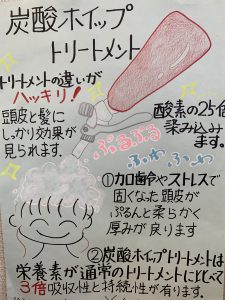 炭酸ホイップ
トリートメント
トリートメントの違いが
ハッキリ！
頭皮と髪に
しっかり効果が
見られます。
酸素の25倍
染み込み
ます。
ぷるぷる
ふわふわ
①加齢やストレスで
固くなった頭皮が
ぷるんと柔らかく
厚みが戻ります
②炭酸ホイップトリートメントは
栄養素が通常のトリートメントにくらべて
3倍吸収性と持続性が有ります。